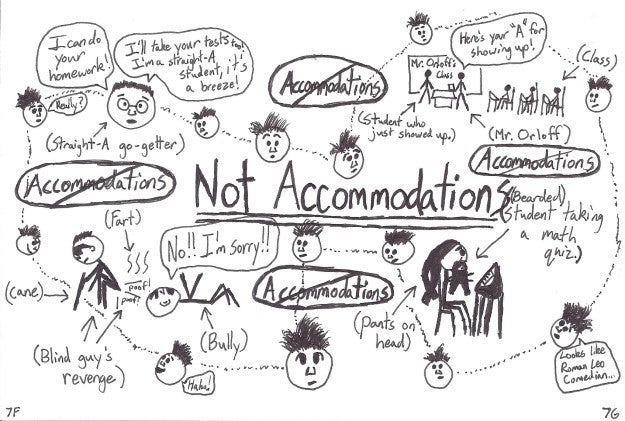 I can do
your
homework!
I'll take your tests too!
I'm a straight-A
student, it's
a breeze!
Really?
(Straight-A go-getter)
Accommodations
Mr. Orloff's
Class
Here's your "A" for
showing up!
(Class)
(Student who
just showed up.)
(Mr. Orloff)
Accommodations
Accommodations
Not Accommodations
(Fart)
poof!
poof!
(cane)
(Blind guy's
revenge)
No!! I'm sorry!!
(Bully)
Haha!
Accommodations
(Bearded)
(Student taking
a math
quiz.)
(pants on
head)
Looks like
Roman Leo
Comedian...
7F
7G